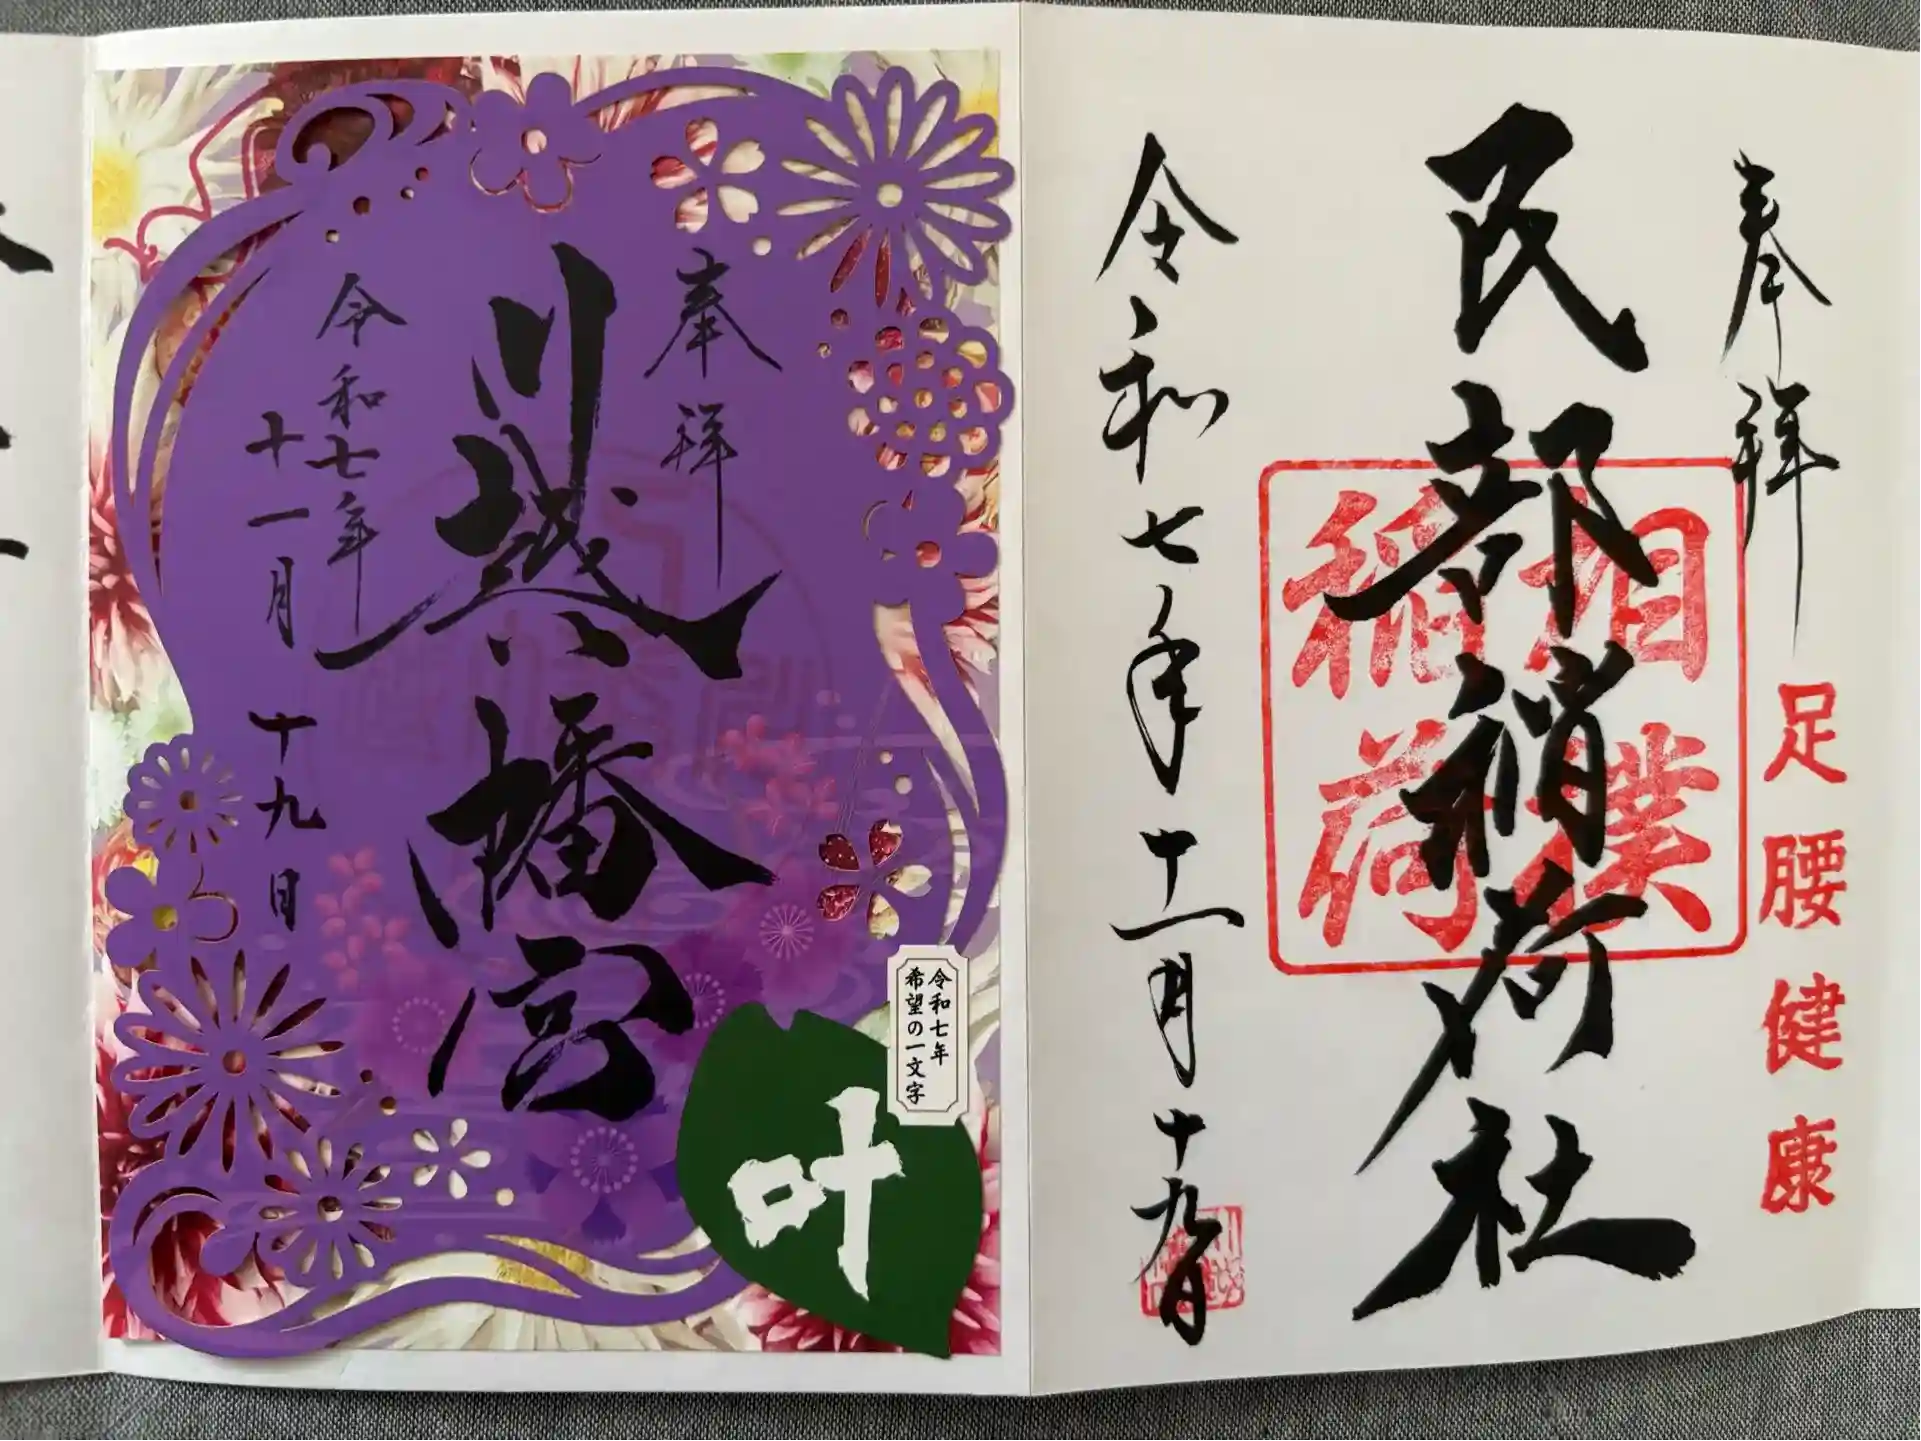 奉拝
足腰健康
民部稲荷社
相撲
稲荷
令和七年十一月十九日
奉拝
川越八幡宮
令和七年
十一月十九日
令和七年
希望の一文字
叶